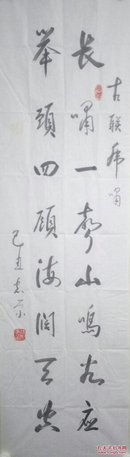 古联虎啸
长啸一声山鸣谷应
举头四顾海阔天空
己丑